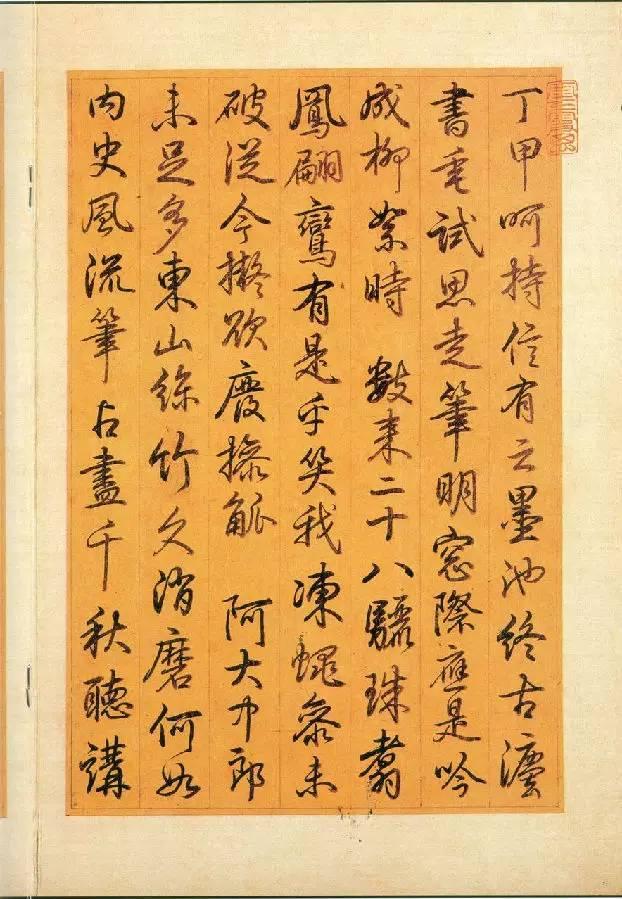 丁甲呵持信有之墨池終古
書垂試思走筆明窓際應是吟
成柳絮時 數來二十八驪珠翥
鳳翩鸞有是乎笑我凍蠅參未
破從今擬欲廢操觚 阿大中郎
未足多東山絲竹久消磨何如
內史風流筆占盡千秋聽講